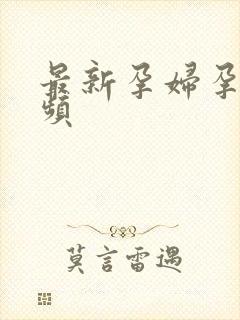 最新孕婦孕
頻
莫言雷遇